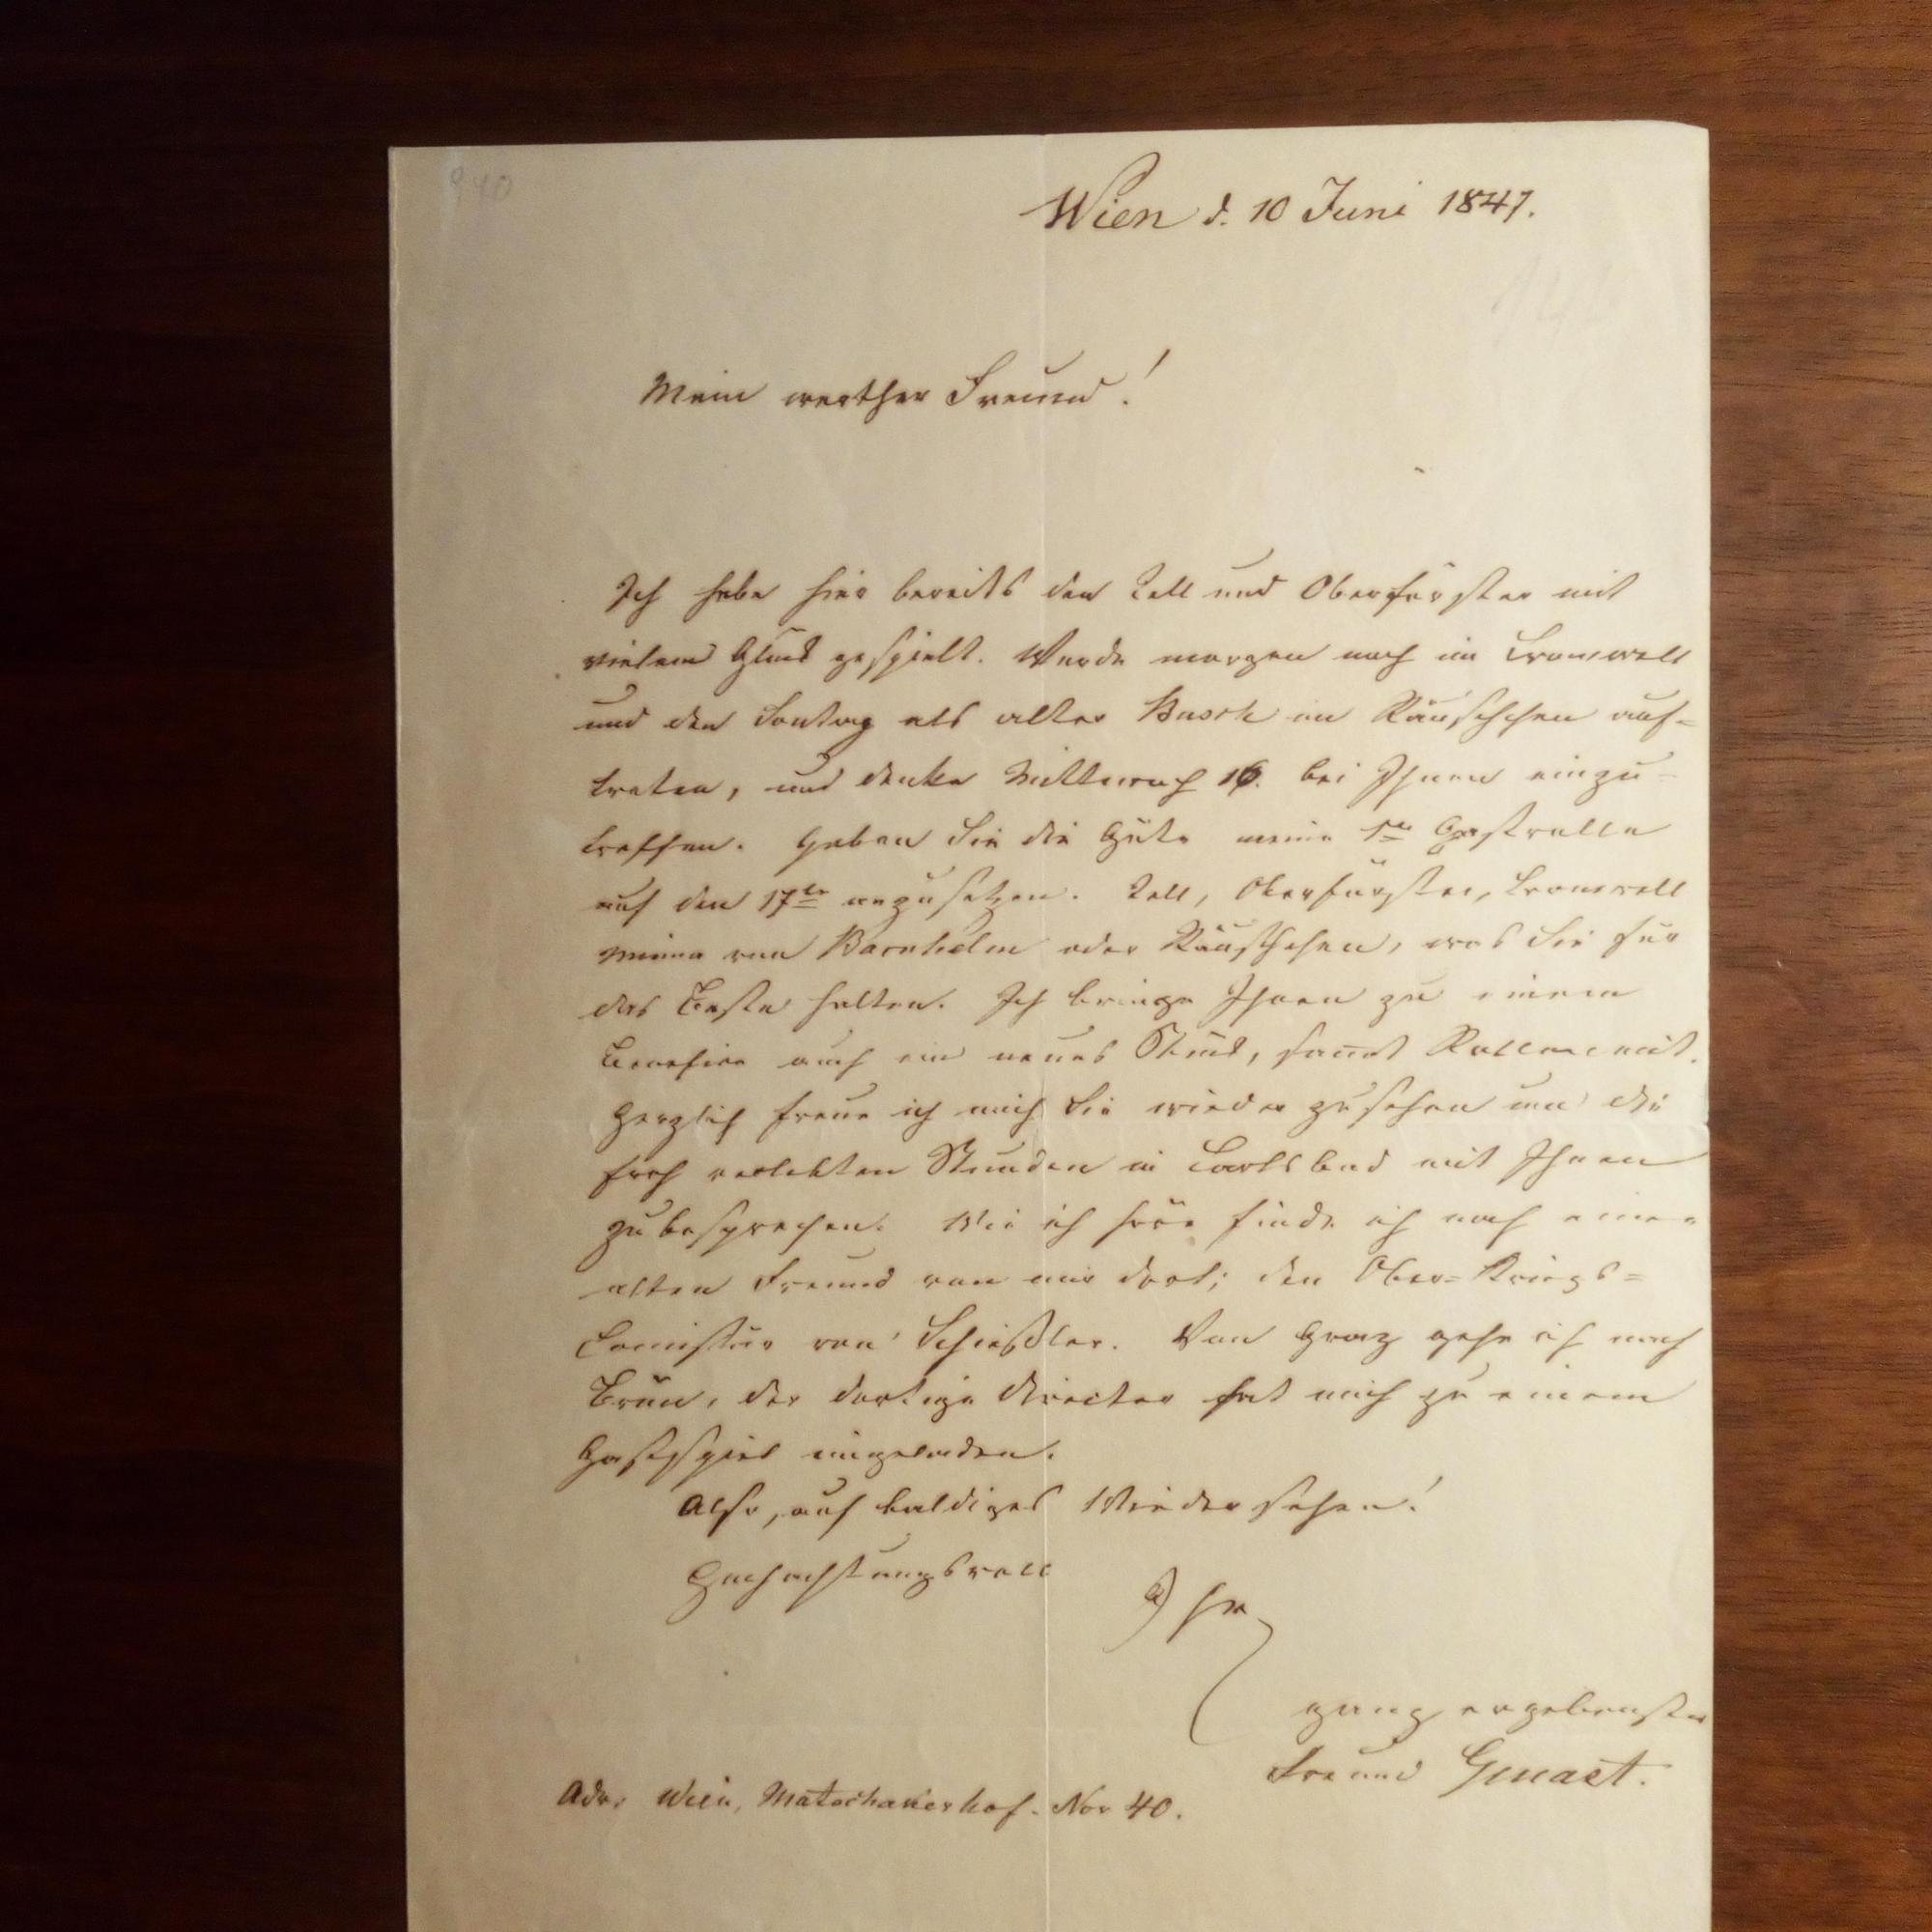 940
Wien d. 10 Juni 1847.
Mein werther Freund!
Ich habe hier bereits den Tell und Oberförster mit
vielem Glück gespielt. Werde morgen noch im Cromwell
und den Sontag als alter Busch im Räuschchen auf-
treten, und denke Mittwoch 16. bei Ihnen einzu-
treffen. Haben Sie die Güte meine 1te Gastrolle
auf den 17te anzusetzen. Tell, Oberförster, Cromwell
Minna von Barnhelm oder Räuschchen, was Sie für
das Beste halten. Ich bringe Ihnen zu einem
Benefice auch ein neues Stück, samt Rollen mit.
Herzlich freue ich mich Sie wieder zu sehen um die
froh verlebten Stunden in Carlsbad mit Ihnen
zu besprechen. Wie ich höre finde ich noch einen
alten Freund von mir dort; den Ober-Kriegs-
Comissär von Schießler. Von Graz gehe ich nach
Brün, der dortige Director hat mich zu einem
Gastspiel eingeladen.
Also, auf baldiges Wiedersehen!
Hochachtungsvoll
Ihr
ganz ergebenster
Freund Genast.
Adr. Wien, Matschakerhof. Nor 40.